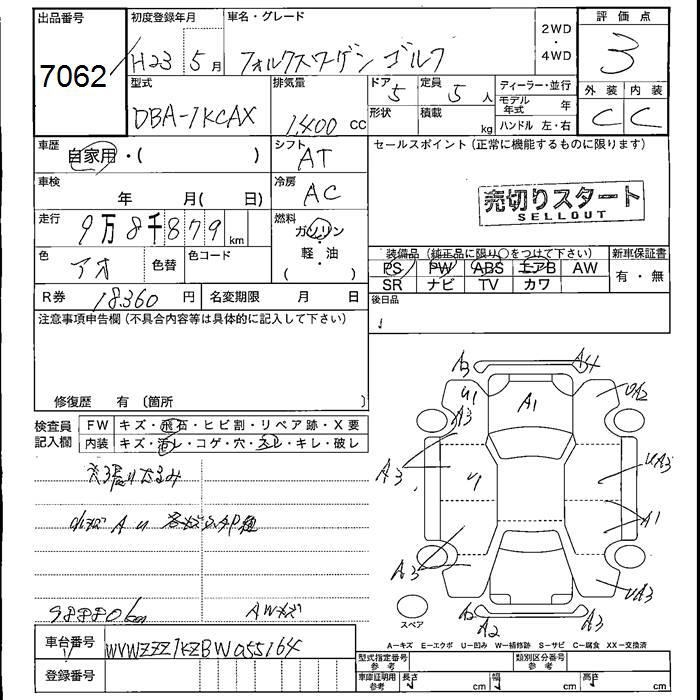 出品番号 初度登録年月 車名・グレード 2WD・4WD 評価点
7062 H23 5月 フォルクスワーゲン ゴルフ 3
型式 排気量 ドア 5 定員 5人 ディーラー・並行 外装 内装
DBA-1KCAX 1,400cc 形状 積載 kg モデル年式 年 C C
ハンドル 左・右
車歴 自家用・( ) シフト AT セールスポイント(正常に機能するものに限ります)
車検 年 月( 日) 冷房 AC 売切りスタート
SELLOUT
走行 9万8千879km 燃料 ガソリン・軽・油 ( )
装備品(純正品に限り○をつけて下さい) 新車保証書
色 アオ 色替 色コード PS PW ABS エアB AW 有・無
SR ナビ TV カワ
R券 18360円 名変期限 月 日 後日品
注意事項申告欄(不具合内容等は具体的に記入して下さい)
修復歴 有〔箇所 〕
検査員記入欄 FW キズ・飛石・ヒビ割・リペア跡・X要
内装 キズ・汚レ・コゲ・穴・スレ・キレ・破レ
A3 A4
U1 A3 A1 UA2
A3 U1 UA3
A1
A3 UA3
A2 A2 A3
スペア
小キズ A U
98880km AWキズ
A-キズ E-エクボ U-凹み W-補修跡 S-サビ C-腐食 XX-交換済
車台番号 WVWZZZ1KZBW055164
型式指定番号 参考 類別区分番号 参考
登録番号 車庫証明用 参考 長さ cm 幅 cm 高さ cm